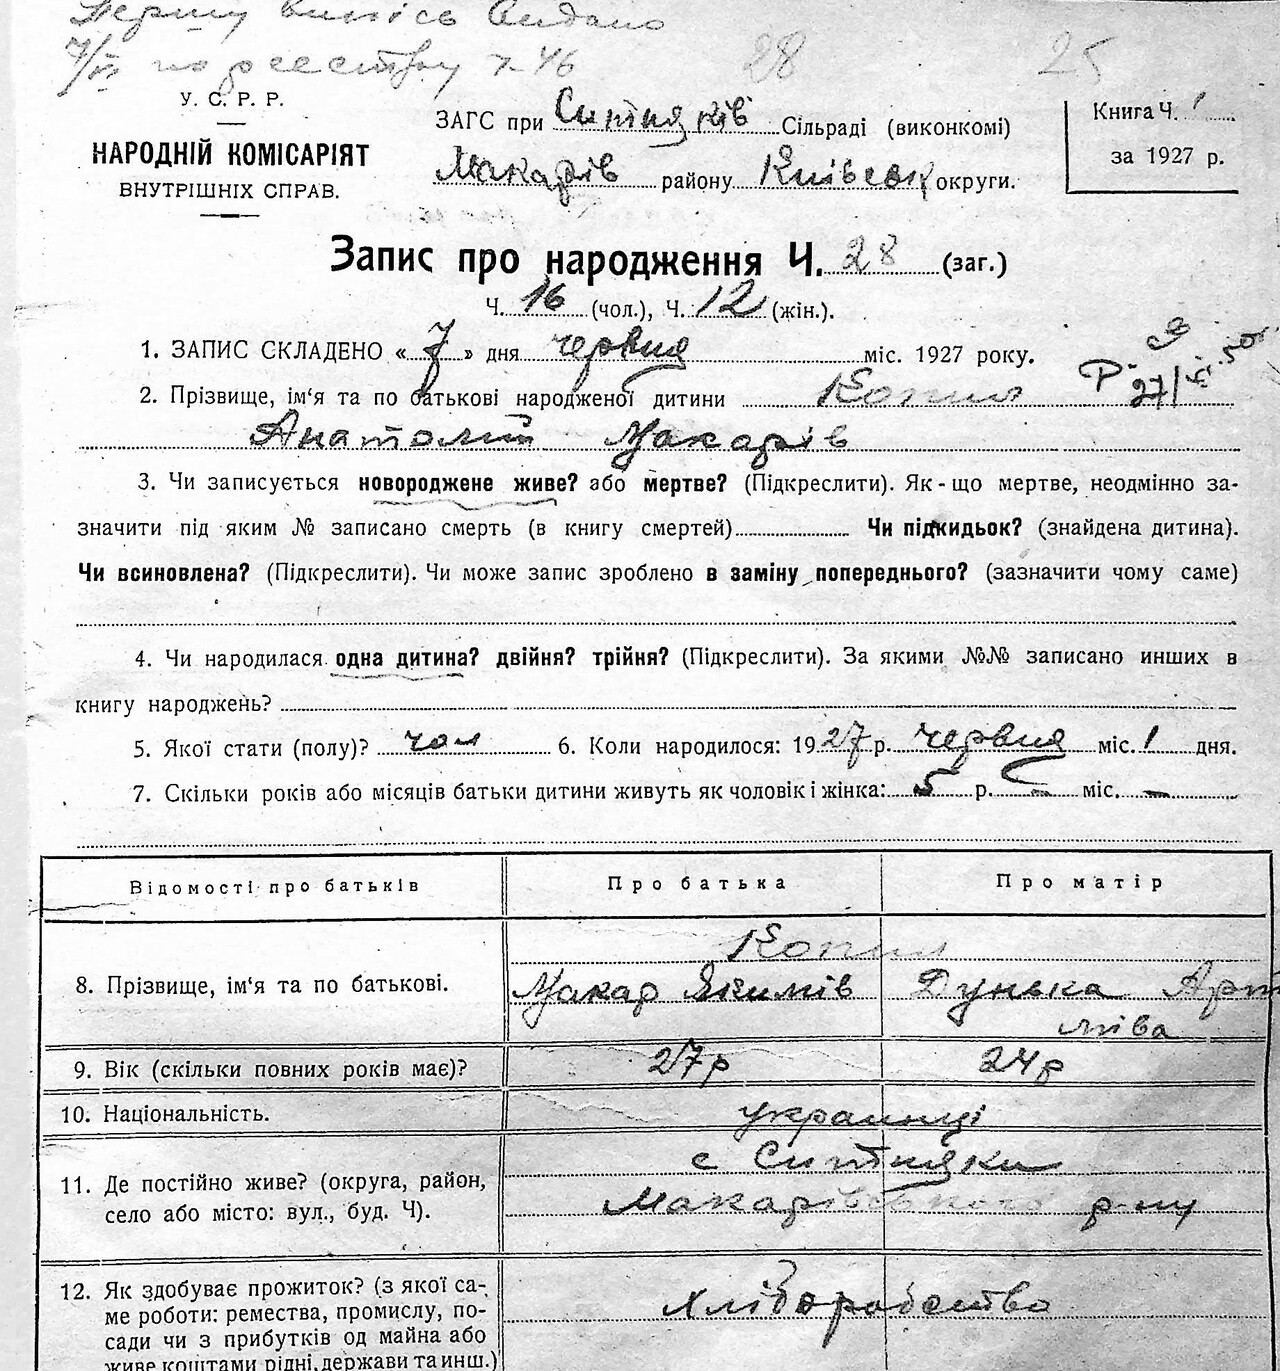 Першу випись видано
7/VI по реєстру № 46
28 25
У. С. Р. Р.
НАРОДНІЙ КОМІСАРІЯТ
ВНУТРІШНІХ СПРАВ.
ЗАГС при Ситняків Сільраді (виконкомі)
Макарів району Київськ округи.
Книга Ч. 1
за 1927 р.
Запис про народження Ч. 28 (заг.)
Ч. 16 (чол.), Ч. 12 (жін.).
1. ЗАПИС СКЛАДЕНО « 7 » дня червня міс. 1927 року.
2. Прізвище, ім‘я та по батькові народженої дитини Копил
Анатолій Макарів
3. Чи записується новороджене живе? або мертве? (Підкреслити). Як-що мертве, неодмінно за-
значити під яким № записано смерть (в книгу смертей) Чи підкидьок? (знайдена дитина).
Чи всиновлена? (Підкреслити). Чи може запис зроблено в заміну попереднього? (зазначити чому саме)
4. Чи народилася одна дитина? двійня? трійня? (Підкреслити). За якими №№ записано инших в
книгу народжень?
5. Якої стати (полу)? чол 6. Коли народилося: 1927 р. червня міс. 1 дня.
7. Скільки років або місяців батьки дитини живуть як чоловік і жінка: 5 р. – міс. –
Відомості про батьків Про батька Про матір
Копил
8. Прізвище, ім‘я та по батькові. Макар Якимів Дунька Арт
мова
9. Вік (скільки повних років має)? 27 р 24 р
10. Національність. українці
с Ситняки
11. Де постійно живе? (округа, район,
село або місто: вул., буд. Ч). Макарівського р-ну
12. Як здобуває прожиток? (з якої са-
ме роботи: ремества, промислу, по- хліборобство
сади чи з прибутків од майна або
живе коштами рідні, держави та инш.)